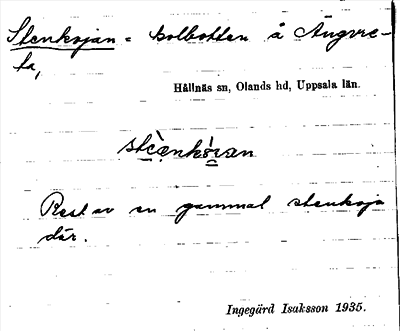 Stenkojan = kolbotten å Ängsve-
ta,
Hållnäs sn, Olands hd, Uppsala län.
Rest av en gammal stenkoja
där.
Ingegärd Isaksson 1935.